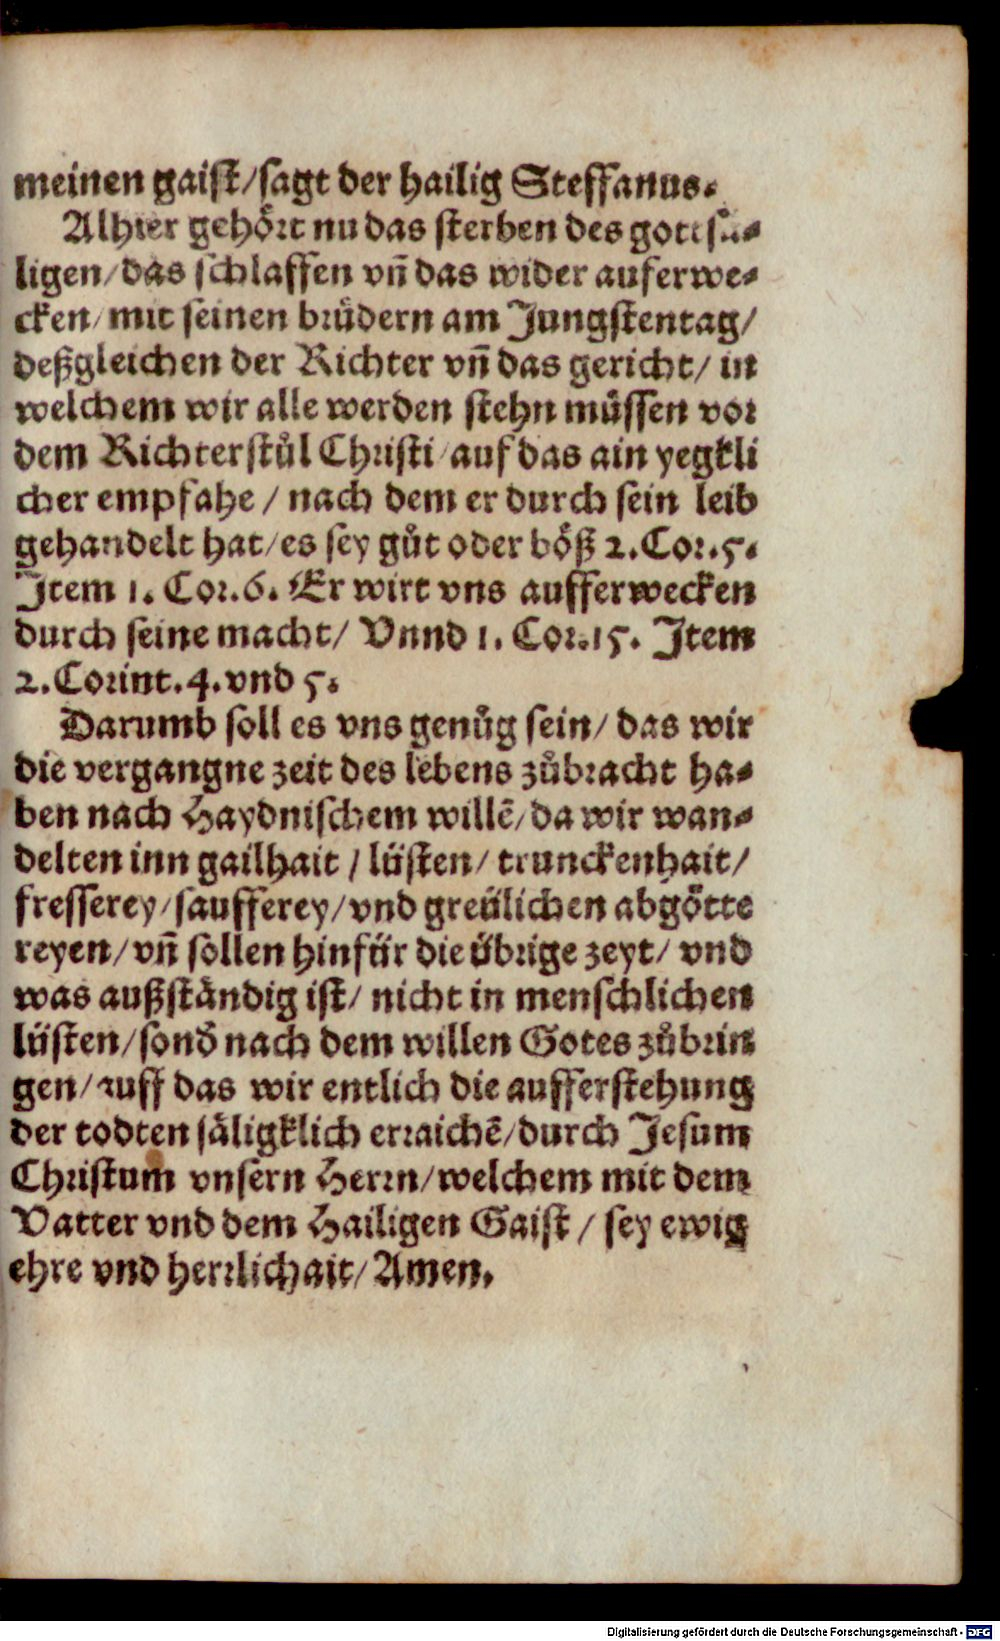 meinen gaiſt/ſagt der hailig Steffanus.
Alhier gehoͤrt nu das ſterben des gottſaͤ-
ligen/das ſchlaffen vñ das wider auferwe-
cken/mit ſeinen bruͤdern am Jungſtentag/
deßgleichen der Richter vñ das gericht/ in
welchem wir alle werden ſtehn muͤſſen vor
dem Richterſtuͦl Chriſti/auf das ain yegkli
cher empfahe/ nach dem er durch ſein leib
gehandelt hat/es ſey guͦt oder boͤß 2.Cor.5.
Item 1. Cor.6. Er wirt vns aufferwecken
durch ſeine macht/ Vnnd 1. Cor.15. Item
2.Corint.4.vnd 5.
Darumb ſoll es vns genuͦg ſein/ das wir
die vergangne zeit des lebens zuͦbracht ha-
ben nach Haydniſchem willē/da wir wan-
delten inn gailhait/ luͤſten/ trunckenhait/
freſſerey/ſaufferey/vnd greuͤlichen abgoͤtte
reyen/vñ ſollen hinfuͤr die uͤbrige zeyt/ vnd
was außſtaͤndig iſt/ nicht in menſchlichen
luͤſten/ſond̛ nach dem willen Gotes zuͦbrin
gen/auff das wir entlich die aufferſtehung
der todten ſaͤligklich erraichē/durch Jeſum
Chriſtum vnſern Herrn/welchem mit dem
Vatter vnd dem Hailigen Gaiſt/ ſey ewig
ehre vnd herrlichait/Amen.
Digitalisierung gefördert durch die Deutsche Forschungsgemeinschaft - DFG